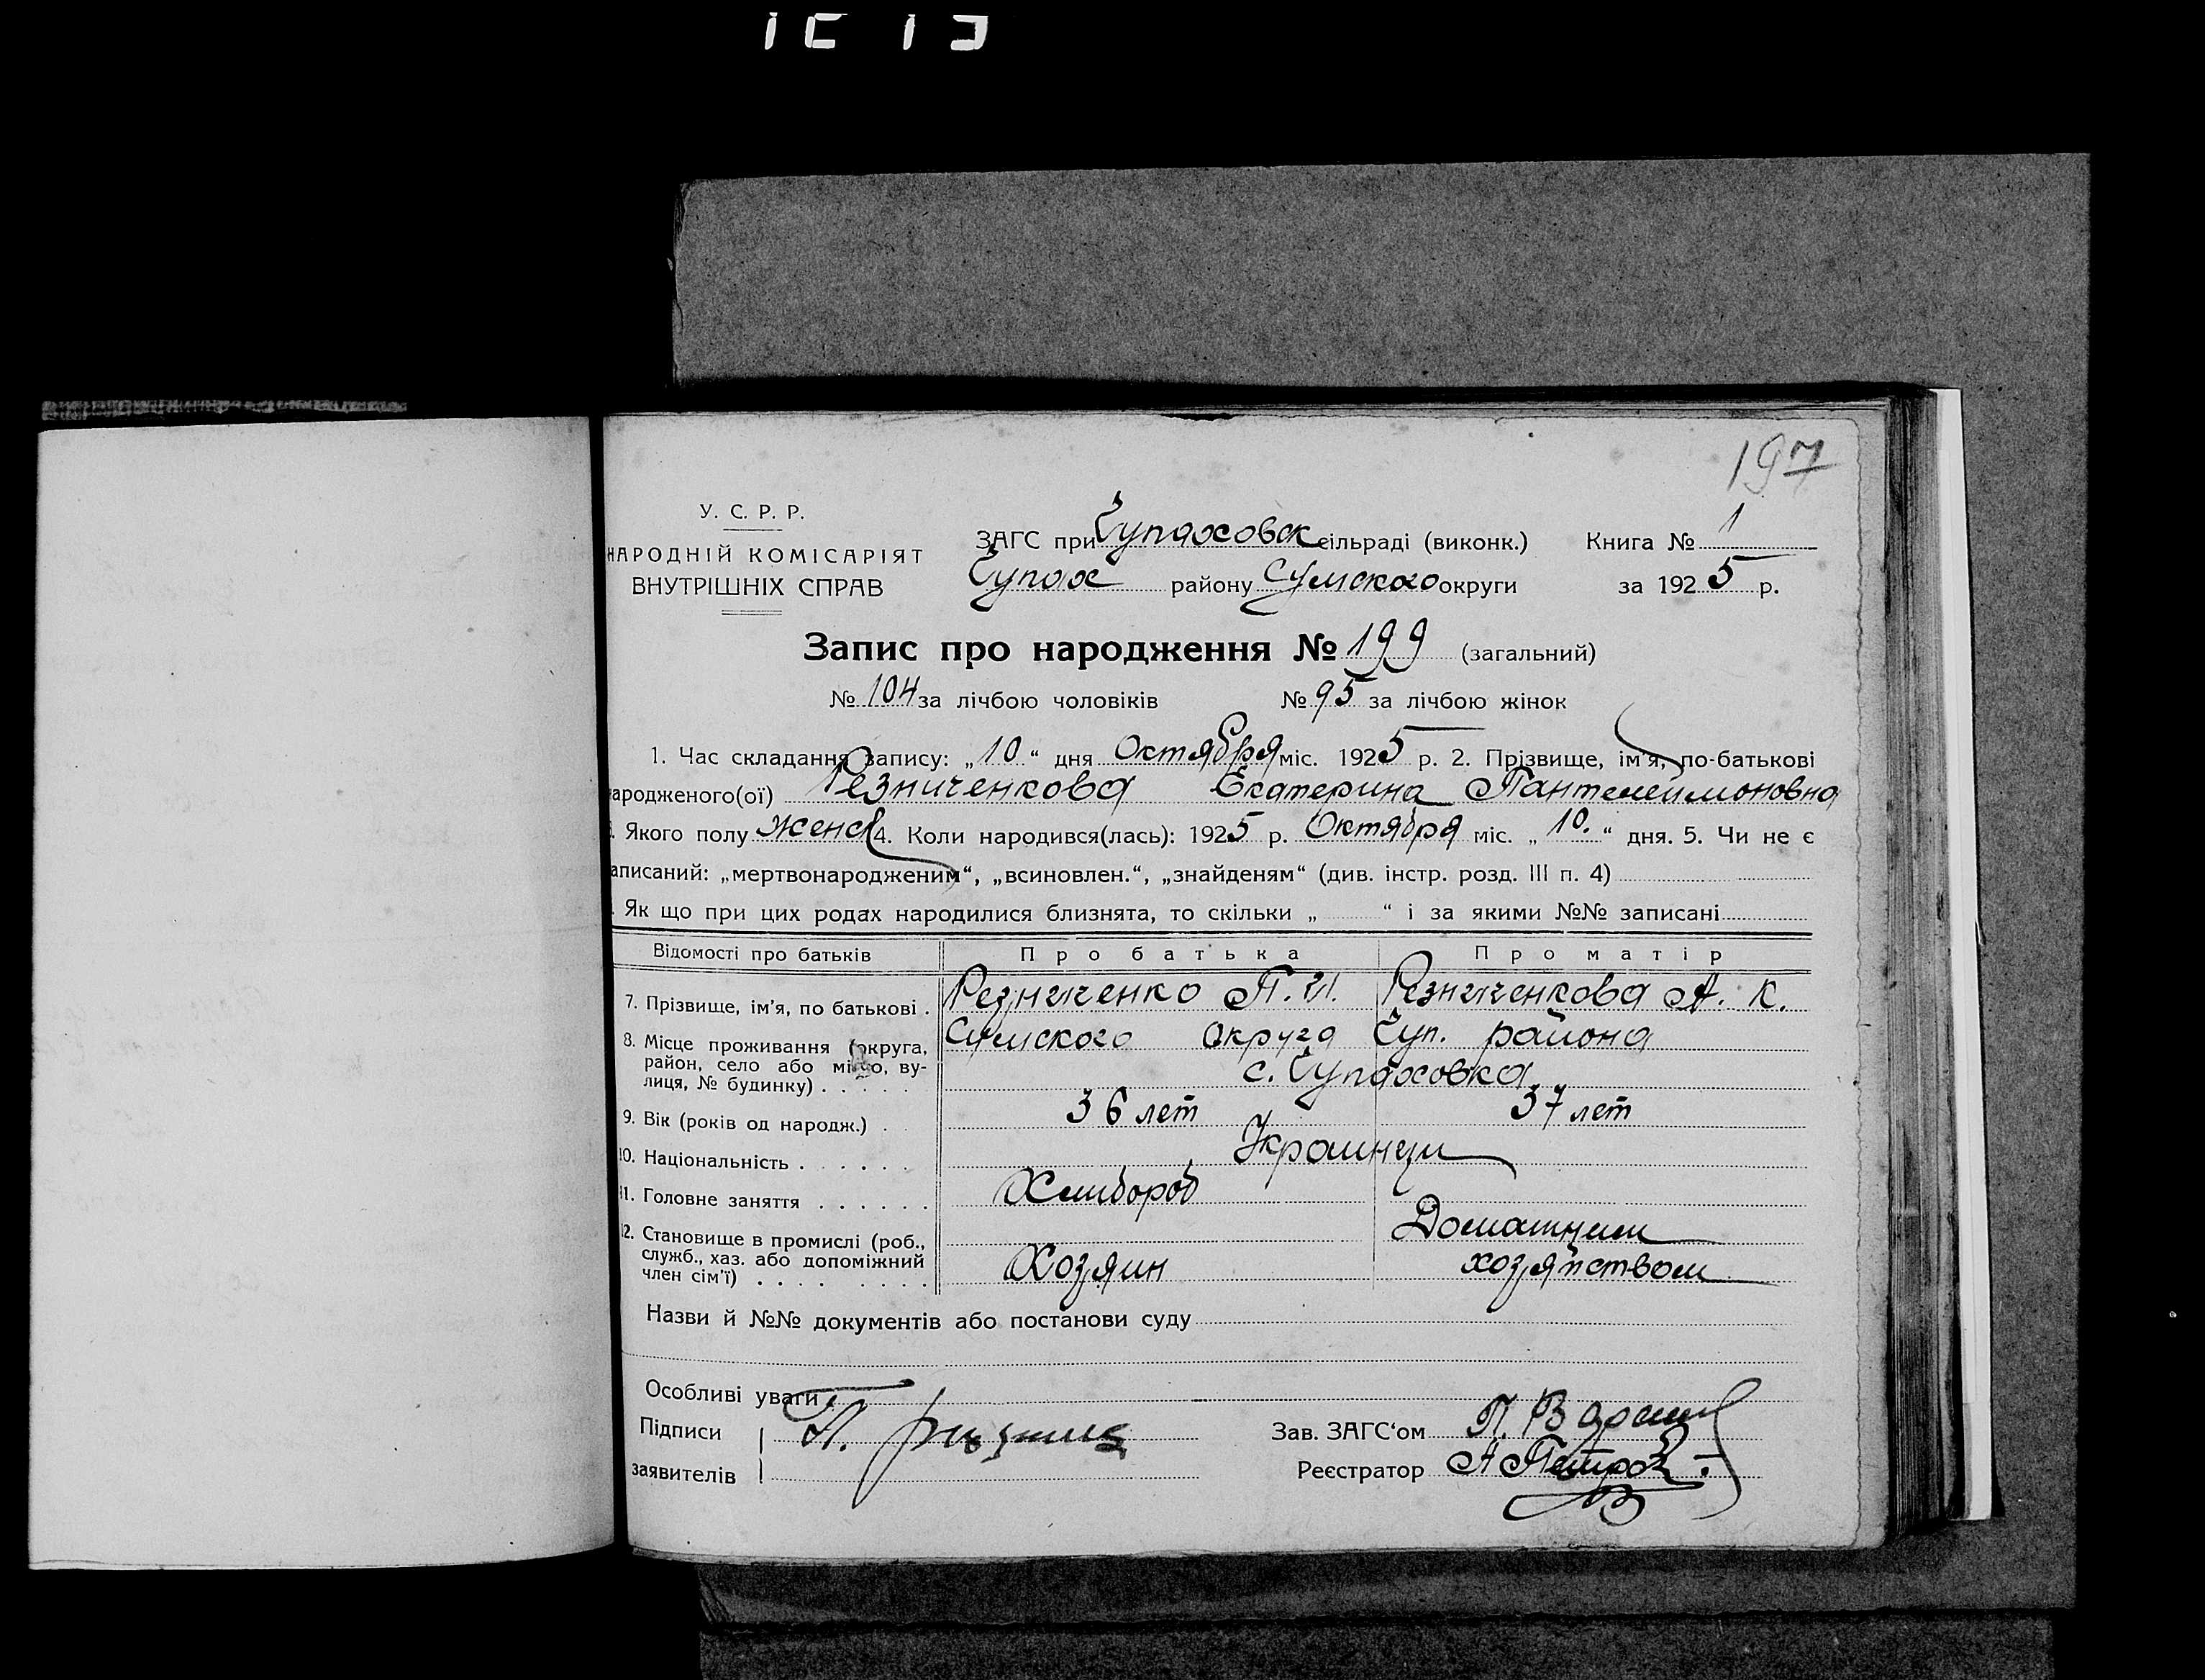 197
У. С. Р. Р.
НАРОДНІЙ КОМІСАРІЯТ
ВНУТРІШНІХ СПРАВ
ЗАГС при Чупаховск сільраді (виконк.) Книга № 1
Чупах району Сумского округи за 1925 р.
Запис про народження № 199 (загальний)
№ 104 за лічбою чоловіків № 95 за лічбою жінок
1. Час складання запису: „10“ дня Октября міс. 1925 р. 2. Прізвище, ім'я, по-батькові
народженого(ої) Резниченкова Екатерина Пантелеймоновна
Якого полу женс 4. Коли народився(лась): 1925 р. Октября міс. „10.“ дня. 5. Чи не є
аписаний: „мертвонародженим“, „всиновлен.“, „знайденям“ (див. інстр. розд. III п. 4)
Як що при цих родах народилися близнята, то скільки „ “ і за якими №№ записані
Відомості про батьків Про батька Про матір
7. Прізвище, ім'я, по батькові . Резниченко П. И. Резниченкова А. К.
8. Місце проживання (округа, район, село або місто, вулиця, № будинку) . . . . . Сумского округа Чуп. района
с. Чупаховка
9. Вік (років од народж.) . . 36 лет 37 лет
10. Національність . . . . . . Украинцы
11. Головне заняття . . . . . . Хлибороб
12. Становище в промислі (роб., служб., хаз. або допоміжний член сім'ї) . . . . . . . . Хозяин Домашним
хозяйством
Назви й №№ документів або постанови суду
Особливі уваги .
Підписи П. Зав. ЗАГС'ом П.
заявителів Реєстратор А Петров